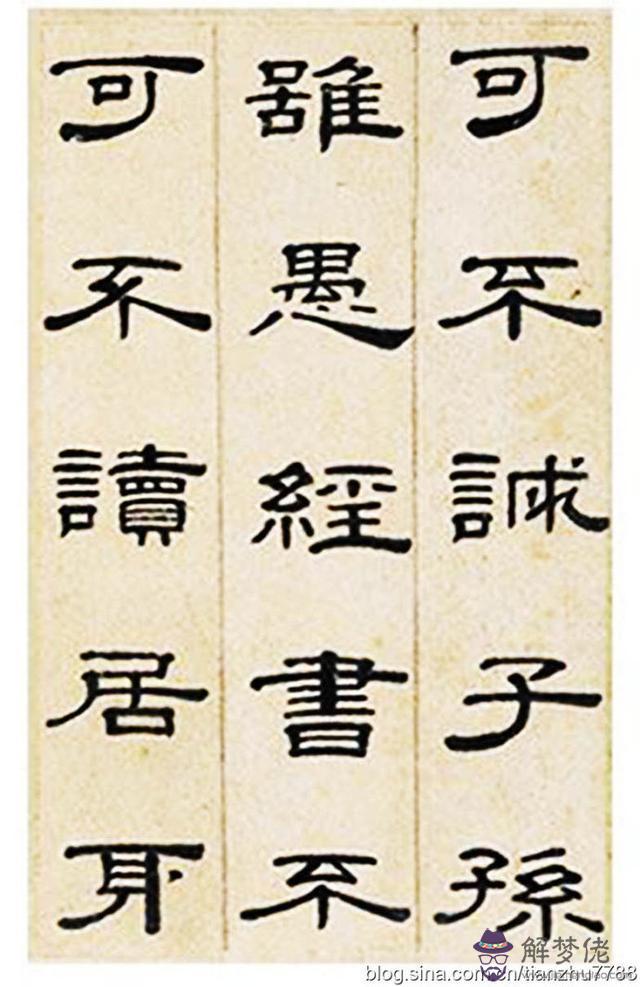 可不誠子孫
雖愚經書不
可不讀居身
解梦佬
blog.sina.com.cn/tianzhu7788